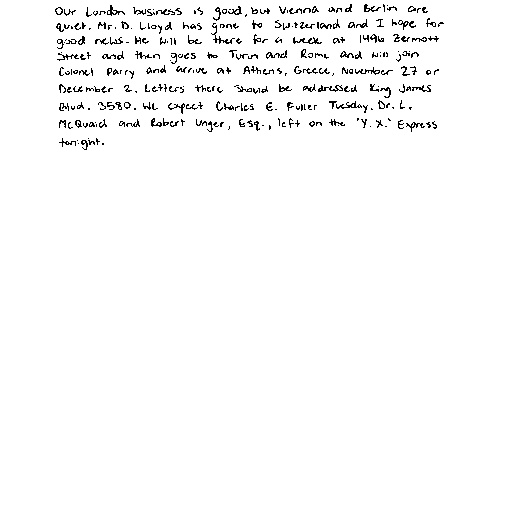 Our London business is good, but Vienna and Berlin are
quiet. Mr. D. Lloyd has gone to Switzerland and I hope for
good news. He will be there for a week at 1496 Zermott
Street and then goes to Turin and Rome and will join
Colonel Parry and arrive at Athens, Greece, November 27 or
December 2. Letters there should be addressed King James
Blvd. 3580. We expect Charles E. Fuller Tuesday. Dr. L.
McQuaid and Robert Unger, Esq., left on the "Y.X." Express
tonight.